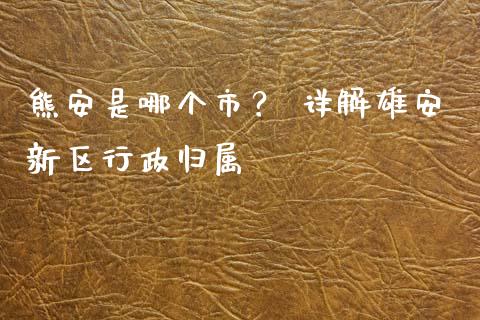 熊安是哪个市？ 详解雄安
新区行政归属